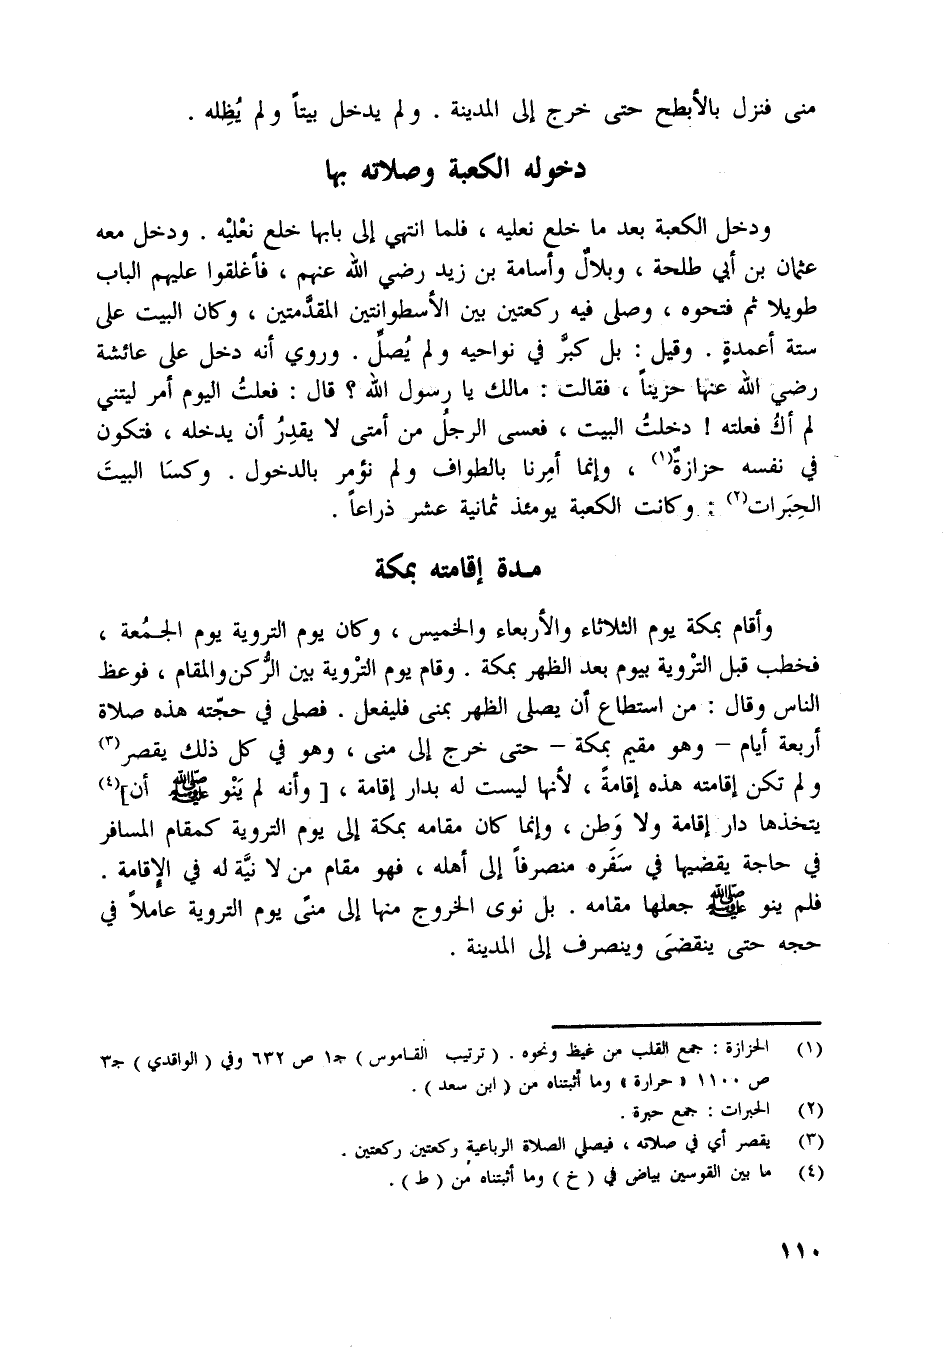 منى فنزل بالأبطح حتى خرج إلى المدينة . ولم يدخل بيتاً ولم يُظِله .
دخوله الكعبة وصلاته بها
ودخل الكعبة بعد ما خلع نعليه ، فلما انتهي إلى بابها خلع نعْليْه . ودخل معه
عثمان بن أبي طلحة ، وبلالٌ وأسامة بن زيد رضي الله عنهم ، فأغلقوا عليهم الباب
طويلا ثم فتحوه ، وصلى فيه ركعتين بين الأسطوانتين المقدَّمتين ، وكان البيت على
ستة أعمدةٍ . وقيل : بل كبرَّ في نواحيه ولم يُصلِّ . وروي أنه دخل على عائشة
رضي الله عنها حزيناً ، فقالت : مالك يا رسول الله ؟ قال : فعلتُ اليوم أمر ليتني
لم أكُ فعلته ! دخلتُ البيت ، فعسى الرجلُ من أمتى لا يقدِرُ أن يدخله ، فتكون
في نفسه حزازةٌ(١) ، وإنما أمِرنا بالطواف ولم نؤمر بالدخول . وكسَا البيتَ
الحِبَرات(٢) : وكانت الكعبة يومئذ ثمانية عشر ذراعاً .
مـدة إقامته بمكة
وأقام بمكة يوم الثلاثاء والأربعاء والخميس ، وكان يوم التروية يوم الجـمُعة ،
فخطب قبل الترْوية بيوم بعد الظهر بمكة . وقام يوم الترْوية بين الرُّكن والمقام ، فوعظ
الناس وقال : من استطاع أن يصلى الظهر بمنى فليفعل . فصلى في حجّته هذه صلاة
أربعة أيام – وهو مقيم بمكة – حتى خرج إلى منى ، وهو في كل ذلك يقصر(٣)
ولم تكن إقامته هذه إقامةً ، لأنها ليست له بدار إقامة ، [ وأنه لم يَنْو ﷺ أن](٤)
يتخذها دار إقامة ولا وَطن ، وإنما كان مقامه بمكة إلى يوم التروية كمقام المسافر
في حاجة يقضيها في سَفَره منصرفاً إلى أهله ، فهو مقام من لا نيَّة له في الإقامة .
فلم ينو ﷺ جعلها مقامه . بل نوى الخروج منها إلى منىً يوم التروية عاملاً في
حجه حتى ينقضىَ وينصرف إلى المدينة .
(١) الحزازة : جمع القلب من غيظ ونحوه . ( ترتيب القـاموس ) جـ١ ص ٦٣٢ وفي ( الواقدي ) جـ٣
ص ١١٠٠ « حرارة » وما أثبتناه من ( ابن سعد ) .
(٢) الحبرات : جمع حبرة .
(٣) يقصر أي في صلاته ، فيصلي الصلاة الرباعية ركعتين ركعتين .
(٤) ما بين القوسين بياض في ( خ ) وما أثبتناه من ( ط ) .
١١٠